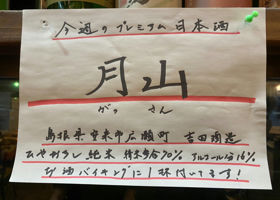 今週のプレミアム日本酒
月山
がっ さん
島根県安来市広瀬町 吉田酒造
ひやおろし 純米 精米歩合70% アルコール分16%
が酒バイキングに1杯付いてます!